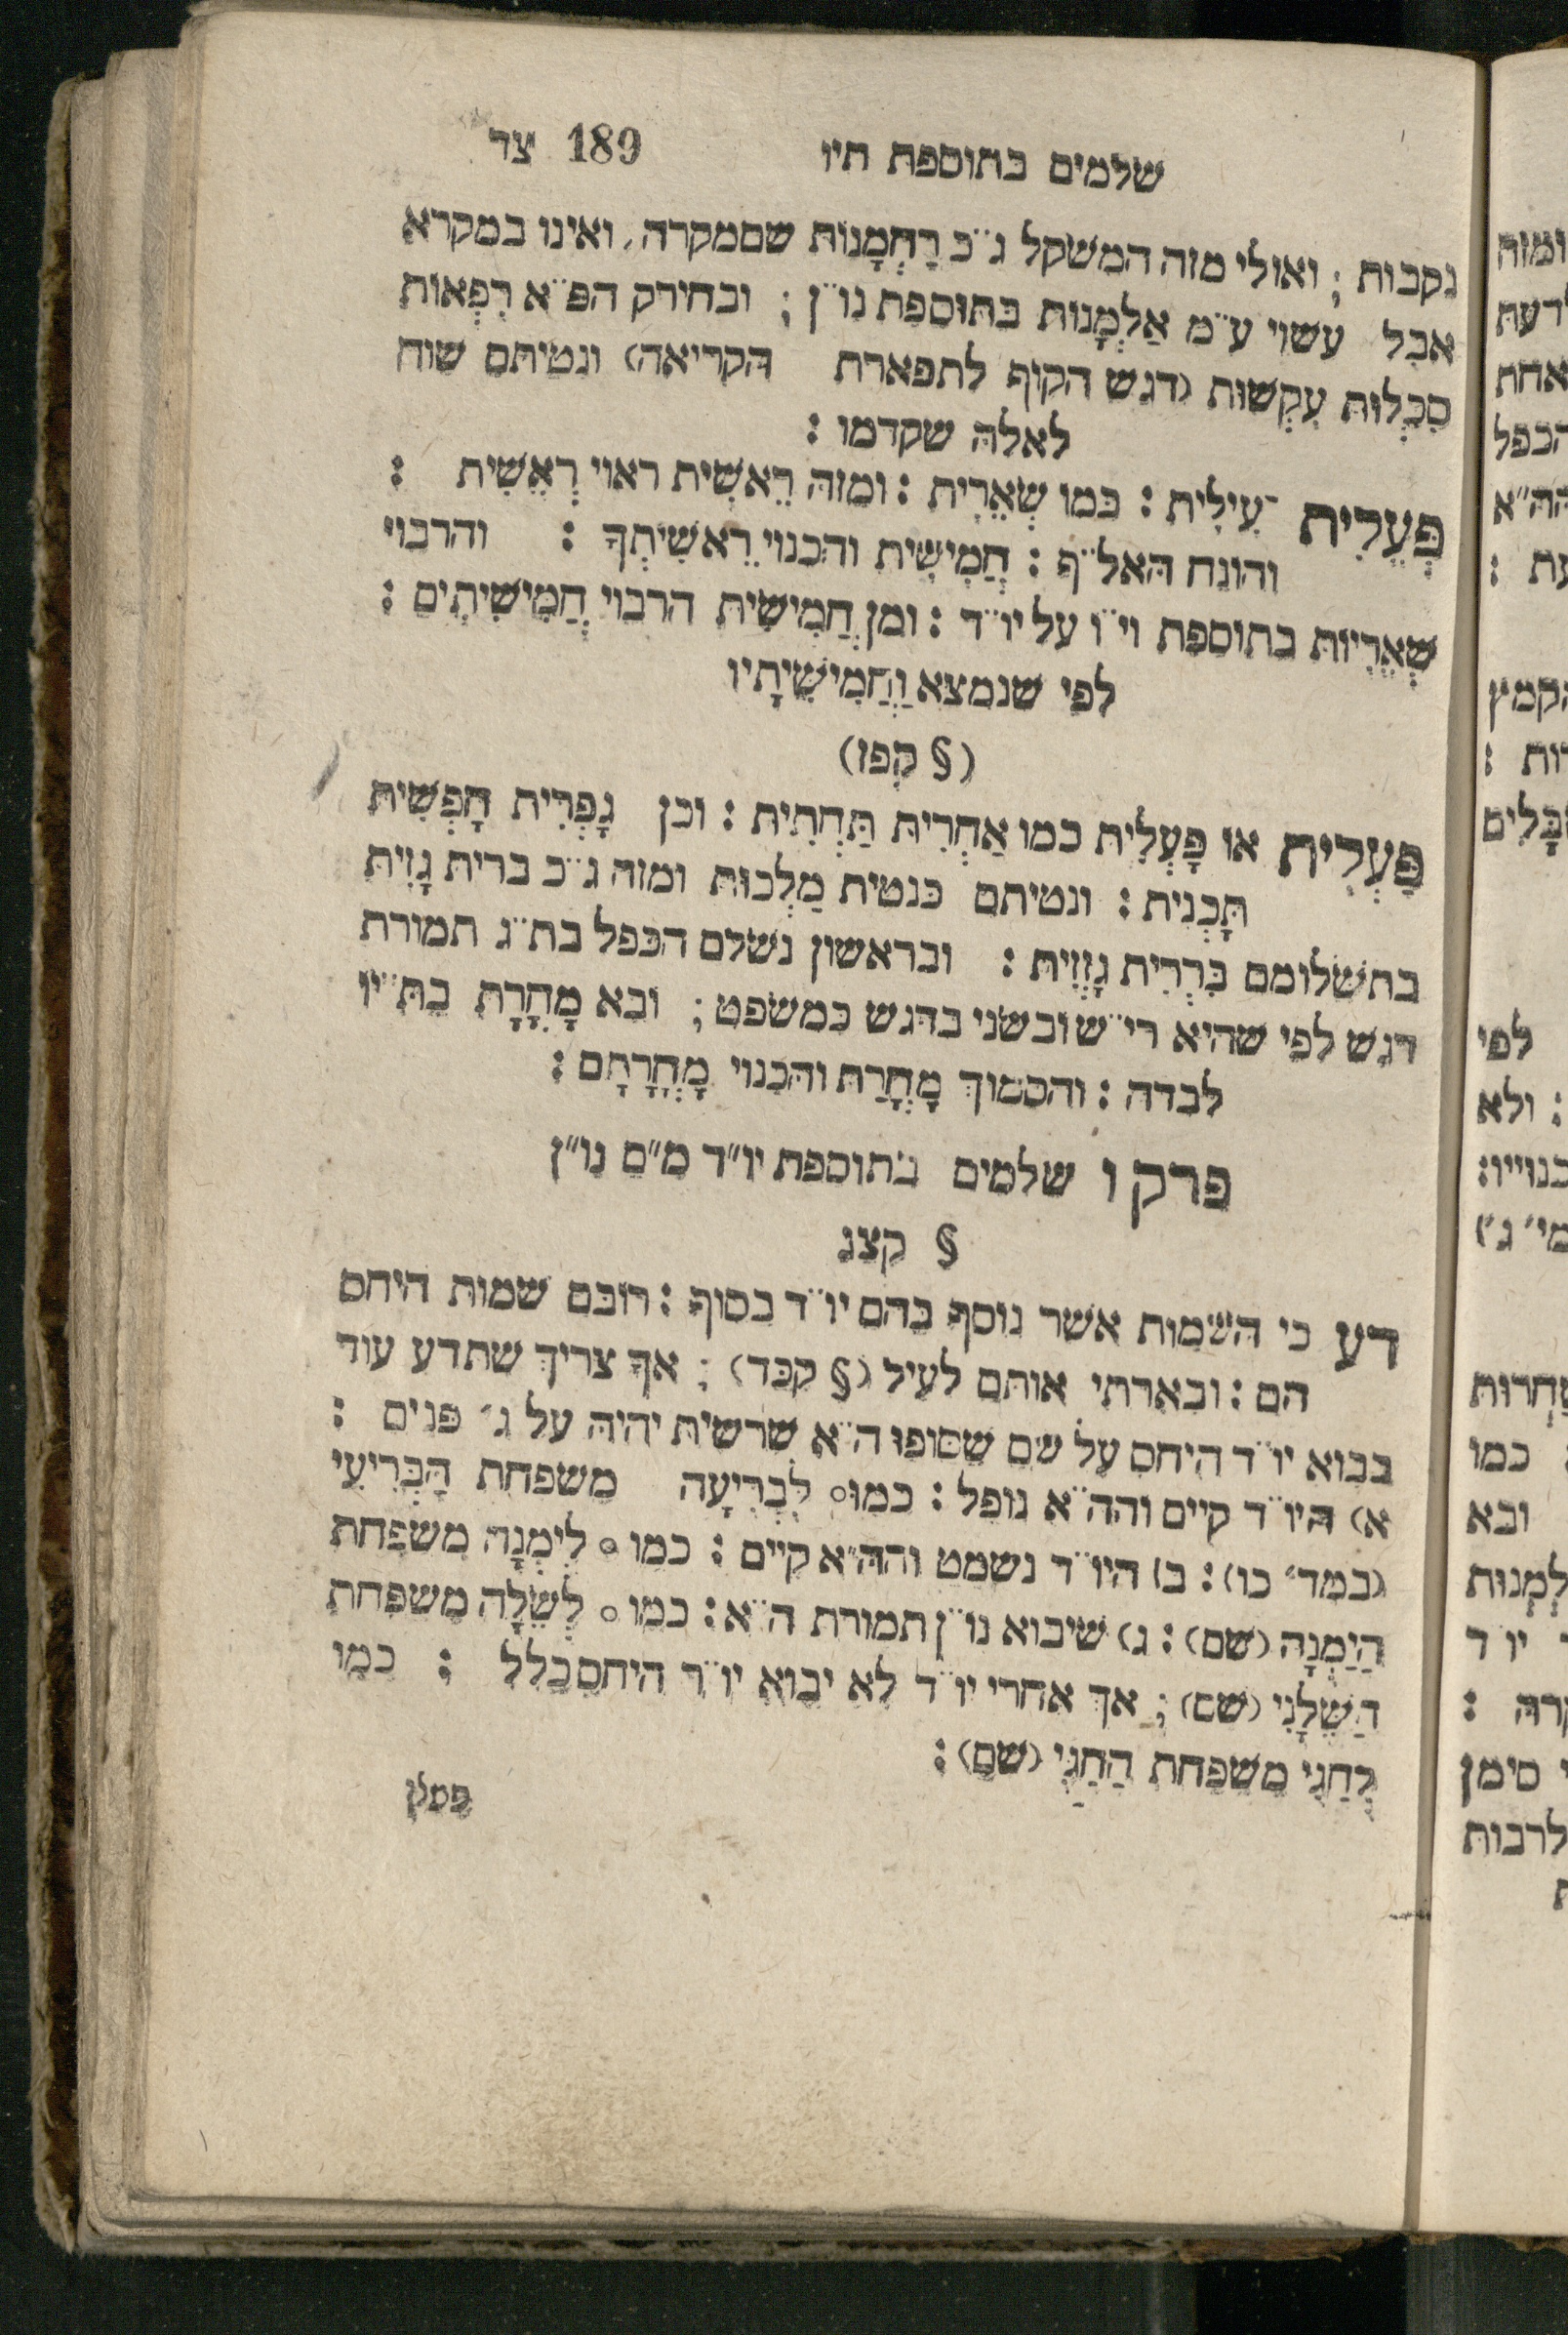 שלמים בתוספת תיו 189 צד
נקבות ; ואולי מזה המשקל ג״כ רַחְמָנוּת שםמקרה, ואינו במקרא
אבל עשוי ע״מ אַלְמָנוּת בתוספת נו״ן ; ובחירק הפ״א רִפְאוּת
סִכְלוּת עִקְשׁוּת (דגש הקוף לתפארת הקריאה) ונטיתם שוח
לאלה שקדמו :
פְּעֵלִית ־עִילִית : כמו שְׁאֵרִית : ומזה רֵאשִׁית ראוי רְאֵשִׁית :
והונח האל״ף : חֲמִישִׁית והכנוי רֵאשִׁיתְךָ : והרבוי
שְׁאֵרִיוֹת בתוספת וי״ו על יו״ד : ומן חֲמִישִׁית הרבוי חֲמִישִׁיתִים :
לפי שנמצא וַחֲמִישִׁיתָיו
(§ קפז)
פַּעְלִית או פָּעְלִית כמו אַחְרִית תַּחְתִּית : וכן גָפְרִית חָפְשִׁית
תָּכְנִית : ונטיתם כנטית מַלְכוּת ומזה ג״כ ברית גָזִית
בתשלומם בִּרְרִית גָזְזִית : ובראשון נשלם הכפל בת״ג תמורת
דגש לפי שהיא רי״ש ובשני בדגש כמשפט ; ובא מָחֳרָת בת״יו
לבדה : והסמוך מָחֳרַת והכנוי מָחֳרָתָם :
פרק ו שלמים בתוספת יו״ד מ״ם נו״ן
§ קצג
דע כי השמות אשר נוסף בהם יו״ד בסוף : רובם שמות היחס
הם : ובארתי אותם לעיל (§ קכד) ; אך צריך שתדע עוד
בבוא יו״ד היחס על שם שסופו ה״א שרשית יהיה על ג׳ פנים :
א) היו״ד קיים והה״א נופל : כמו ० לִבְרִיעָה משפחת הַבְּרִיעִי
(במד׳ כו) : ב) היו״ד נשמט והה״א קיים : כמו ० לְיִמְנָה משפחת
הַיִּמְנָה (שם) : ג) שיבוא נו״ן תמורת ה״א : כמו ० לְשֵׁלָה משפחת
הַשֵּׁלָנִי (שם) ; אך אחרי יו״ד לא יבוא יו״ד היחס כלל : כמו
לְחַגִּי משפחת הַחַגִּי (שם) :
ומוה
לדעת
אחת
הכפל
הה״א
הקמץ
לפי
: ולא
כנוייו:
כמו
ובא
סימן
לרבות